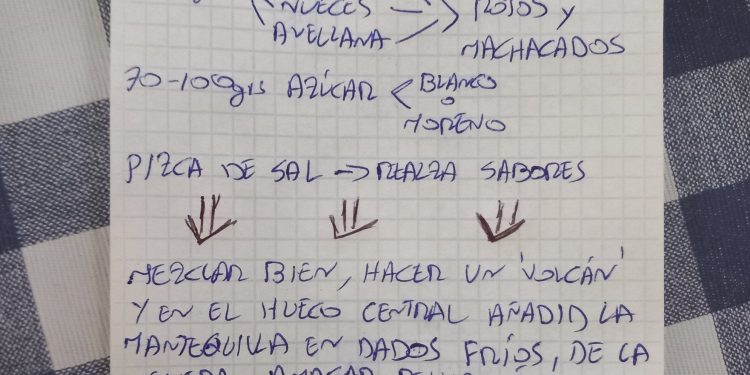 NUECES
AVELLANA
ROTOS Y
MACHACADOS
70-100grs AZÚCAR < BLANCO
O
MORENO
PIZCA DE SAL → REALZA SABORES
MEZCLAR BIEN, HACER UN 'VOLCÁN'
Y EN EL HUECO CENTRAL AÑADID LA
MANTEQUILLA EN DADOS FRÍOS, DE LA